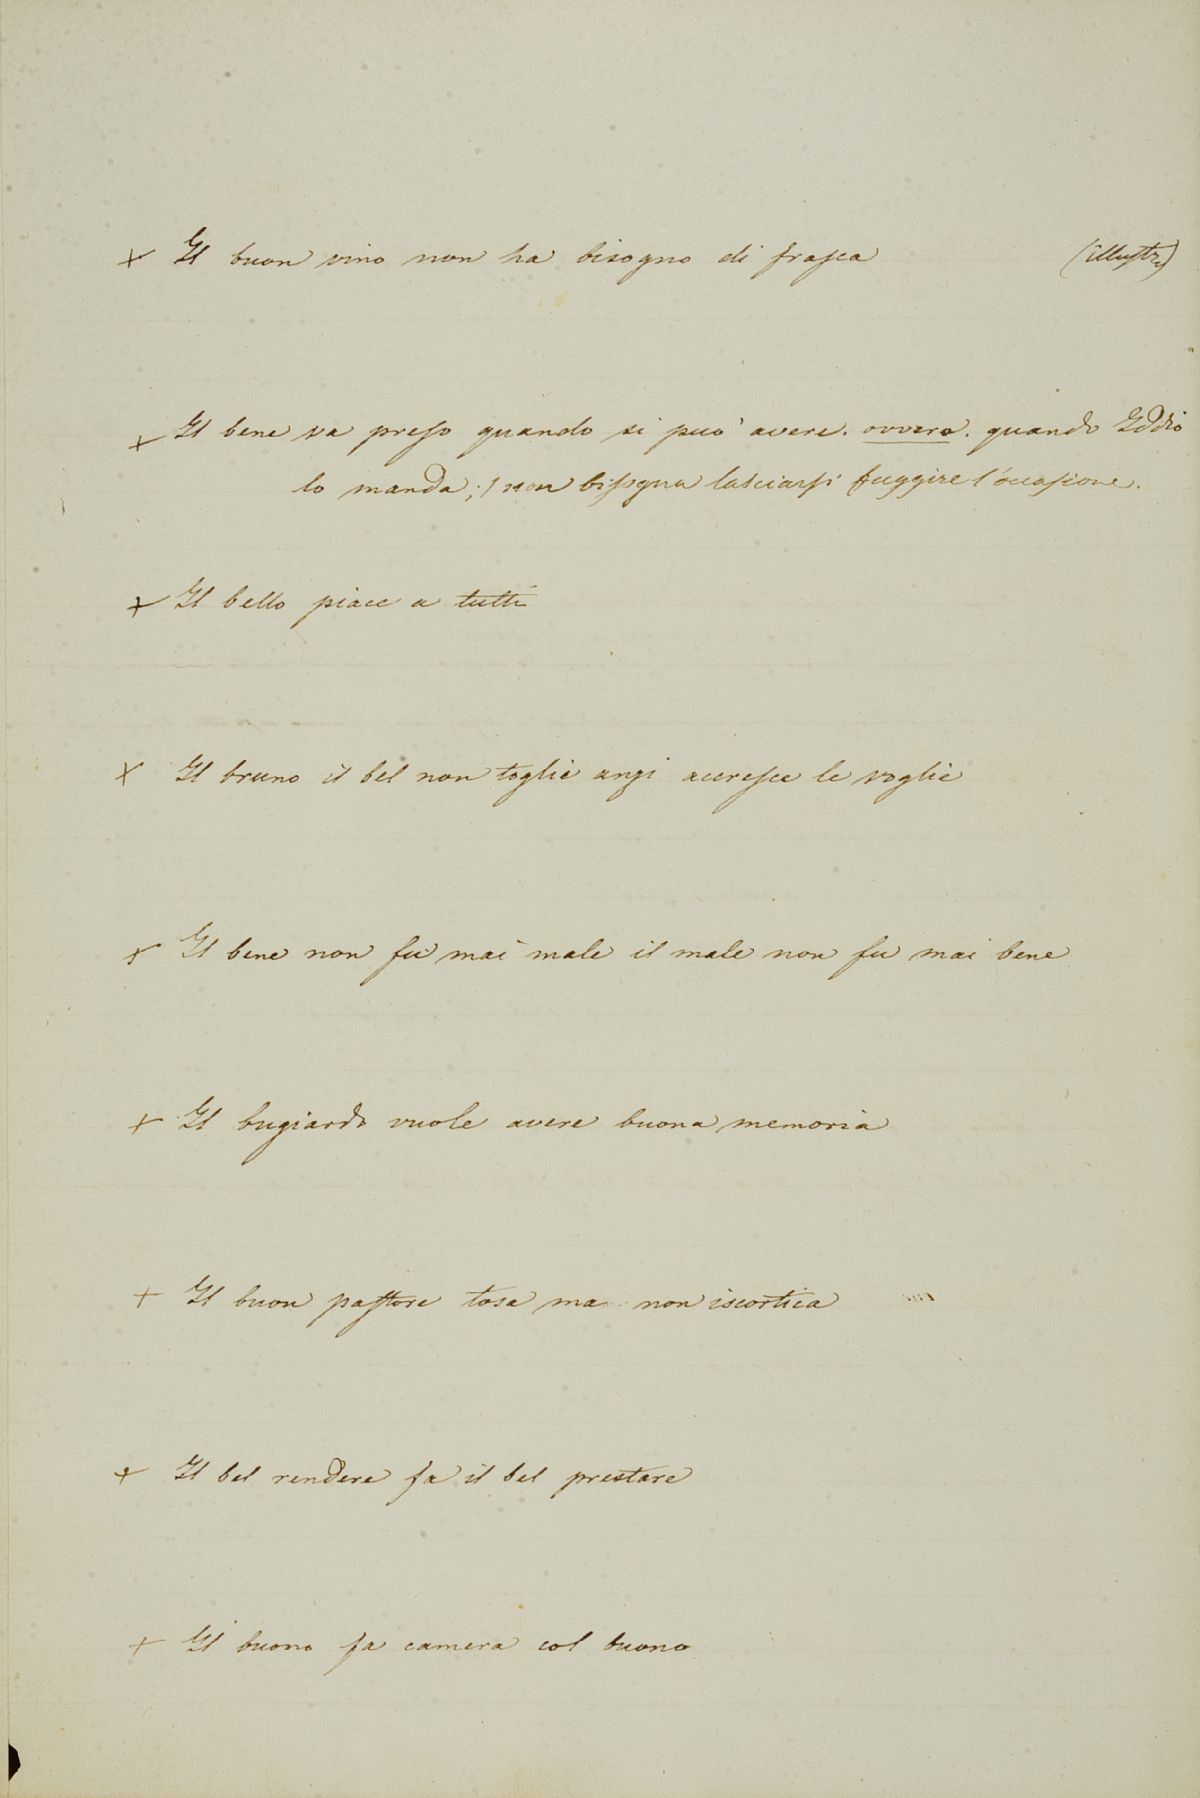 + Il buon vino non ha bisogno di frasca (illustre)
+ Il bene va preso quando si può avere. ovvero. quando Iddio
lo manda; / non bisogna lasciarsi fuggire l'occasione.
+ Il bello piace a tutti
+ Il bruno il bel non toglie anzi accresce le voglie
+ Il bene non fu mai male il male non fu mai bene
+ Il bugiardo vuole avere buona memoria
+ Il buon pastore tosa ma non iscortica
+ Il bel rendere fa il bel prestare
+ Il buono fa camera col buono